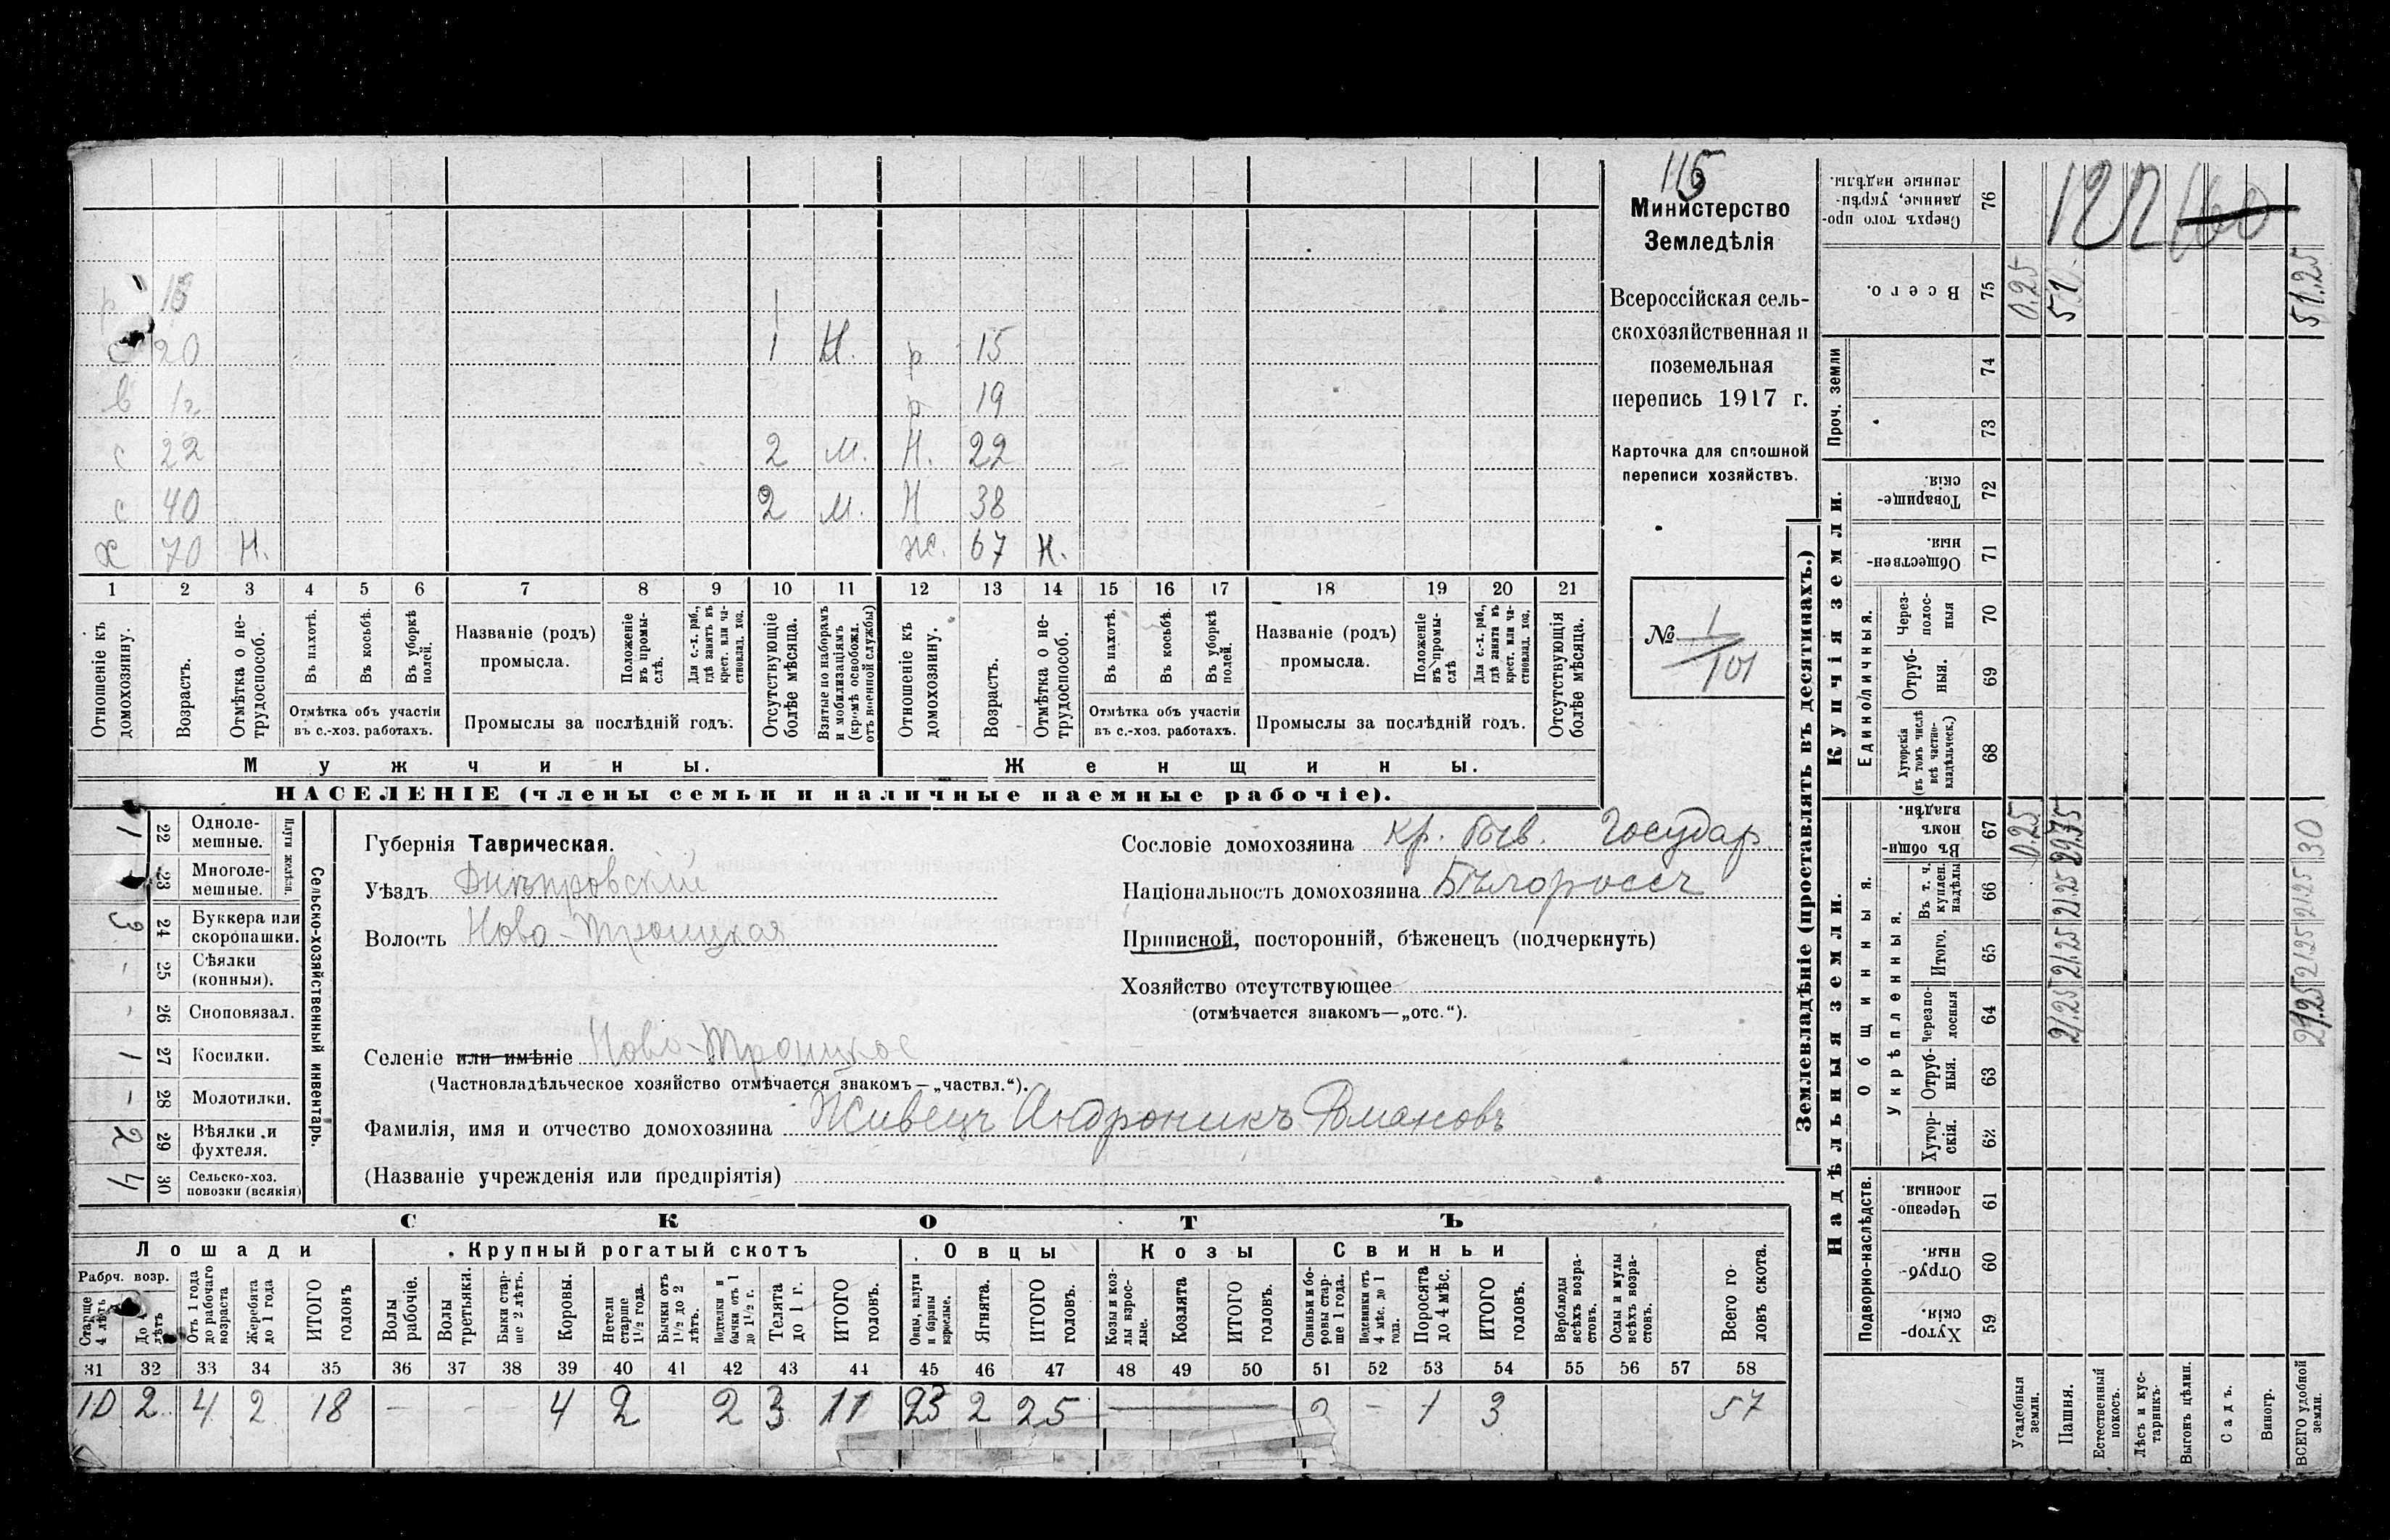 115
Министерство
Земледѣлія
Всероссійская сель-
скохозяйственная и
поземельная
перепись 1917 г.
Карточка для сплошной
переписи хозяйствъ.
№ 1
101
р 18 1
с 20 1 Н. р 15
в 1 г. р 19
с 22 2 М. Н. 22
с 40 2 М. Н 38
х 70 Н. Ж. 67 Н.
1 2 3 4 5 6 7 8 9 10 11 12 13 14 15 16 17 18 19 20 21
Отношеніе къ домохозяину.
Возрастъ.
Отмѣтка о не-трудоспособ.
Въ пахотѣ.
Въ косьбѣ.
Въ уборкѣ полей.
Отмѣтка объ участіи
въ с.-хоз. работахъ.
Названіе (родъ)
промысла.
Положеніе въ промы-слѣ.
Для с.-х. раб., гдѣ занятъ въ крест. или ча-стновлад. хоз.
Промыслы за послѣдній годъ.
Отсутствующіе болѣе мѣсяца.
Взятые по наборамъ и мобилизаціямъ (кромѣ освобожд. отъ военной службы)
Отношеніе къ домохозяину.
Возрастъ.
Отмѣтка о не-трудоспособ.
Въ пахотѣ.
Въ косьбѣ.
Въ уборкѣ полей.
Отмѣтка объ участіи
въ с.-хоз. работахъ.
Названіе (родъ)
промысла.
Положеніе въ промы-слѣ
Для с.-х. раб., гдѣ занята въ крест. или ча-стновлад. хоз.
Промыслы за послѣдній годъ.
Отсутствующія болѣе мѣсяца.
Мужчины.
Женщины.
НАСЕЛЕНІЕ (члены семьи и наличные наемные рабочіе).
Сельско-хозяйственный инвентарь.
Плуги желѣзн.
1 22 Одноле-мешные.
23 Многоле-мешные.
3 24 Буккера или скоропашки.
- 25 Сѣялки (конныя).
- 26 Сноповязал.
1 27 Косилки.
- 28 Молотилки.
2 29 Вѣялки и фухтеля.
4 30 Сельско-хоз. повозки (всякія)
Губернія Таврическая.
Уѣздъ Днѣпровскій
Волость Ново-Троицкая
Селеніе или имѣніе Ново-Троицкое
(Частновладѣльческое хозяйство отмѣчается знакомъ—„частвл.“).
Фамилія, имя и отчество домохозяина Живецъ Андроникъ Романовъ
(Названіе учрежденія или предпріятія)
Сословіе домохозяина кр. быв. Государ.
Національность домохозяина Бѣлороссъ
Приписной, посторонній, бѣженецъ (подчеркнуть)
Хозяйство отсутствующее
(отмѣчается знакомъ—„отс.“).
СКОТЪ
Лошади
Крупный рогатый скотъ
Овцы
Козы
Свиньи
Рабоч. возр.
Старше 4 лѣтъ
До 4 лѣтъ
Отъ 1 года до рабочаго возраста
Жеребята до 1 года
ИТОГО головъ
Волы рабочіе.
Волы третьяки.
Быки стар-ше 2 лѣтъ.
Коровы.
Нетели старше 1 1/2 года.
Бычки отъ 1 1/2 до 2 лѣтъ.
Подтелки и бычки отъ 1 до 1 1/2 г.
Телята до 1 г.
ИТОГО головъ.
Овцы, валухи и бараны взрослые.
Ягнята.
ИТОГО головъ.
Козы и коз-лы взрос-лые.
Козлята
ИТОГО головъ.
Свиньи и бо-ровы стар-ше 1 года.
Подсвинки отъ 4 мѣс. до 1 года.
Поросята до 4 мѣс.
ИТОГО головъ.
Верблюды всѣхъ возра-стовъ.
Ослы и мулы всѣхъ возра-стовъ.
Всего го-ловъ скота.
31 32 33 34 35 36 37 38 39 40 41 42 43 44 45 46 47 48 49 50 51 52 53 54 55 56 57 58
10 2 4 2 18 - - 4 2 2 3 11 23 2 25 2 - 1 3 57
Землевладѣніе (проставлять въ десятинахъ.)
Надѣльныя земли.
Купчія земли.
Проч. земли
Подворно-наслѣдств.
Общинныя.
Укрѣпленныя.
Единоличныя.
76 Сверхъ того про-данные, укрѣп-ленные надѣлы.
75 Всего. 0.25 51 51,25
74
73
72 Товарище-скія.
71 Обществен-ныя.
70 Через-полос-ныя
69 Отруб-ныя.
68 Хуторскія (въ томъ числѣ всѣ частно-владѣльческ.)
67 Въ общи-номъ владѣн. 0.25 29.75 30
66 Въ т. ч. куплен. надѣлы 21.25 21.25
65 Итого. 21.25 21.25
64 Черезпо-лосныя 21.25 21.25
63 Отруб-ныя.
62 Хутор-скія.
61 Черезпо-лосныя.
60 Отруб-ныя.
59 Хутор-скія.
Усадебныя земли.
Пашня.
Естественный покосъ.
Лѣсъ и кус-тарникъ.
Выгонъ цѣлин.
Садъ.
Виногр.
ВСЕГО удобной земли.
122 160